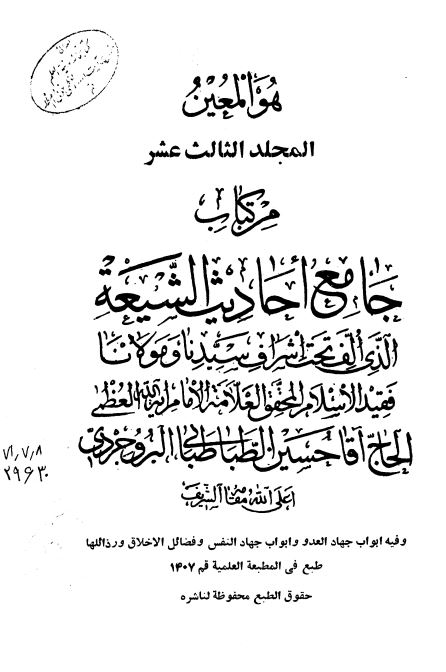 هو المعين
المجلد الثالث عشر
من كتاب
جامع أحاديث الشيعة
الذي ألف تحت أشراف سيدنا ومولانا
فقيد الأسلام المحقق العلامة الأمام آية الله العظمى
الحاج آقا حسين الطباطبائى البروجردي
اعلى الله مقامه الشريف
وفيه ابواب جهاد العدو وابواب جهاد النفس وفضائل الاخلاق ورذائلها
طبع فى المطبعة العلمية قم ۱۴۰۷
حقوق الطبع محفوظة لناشره
۷۱٫۷٫۸
۲۹۶۳۰